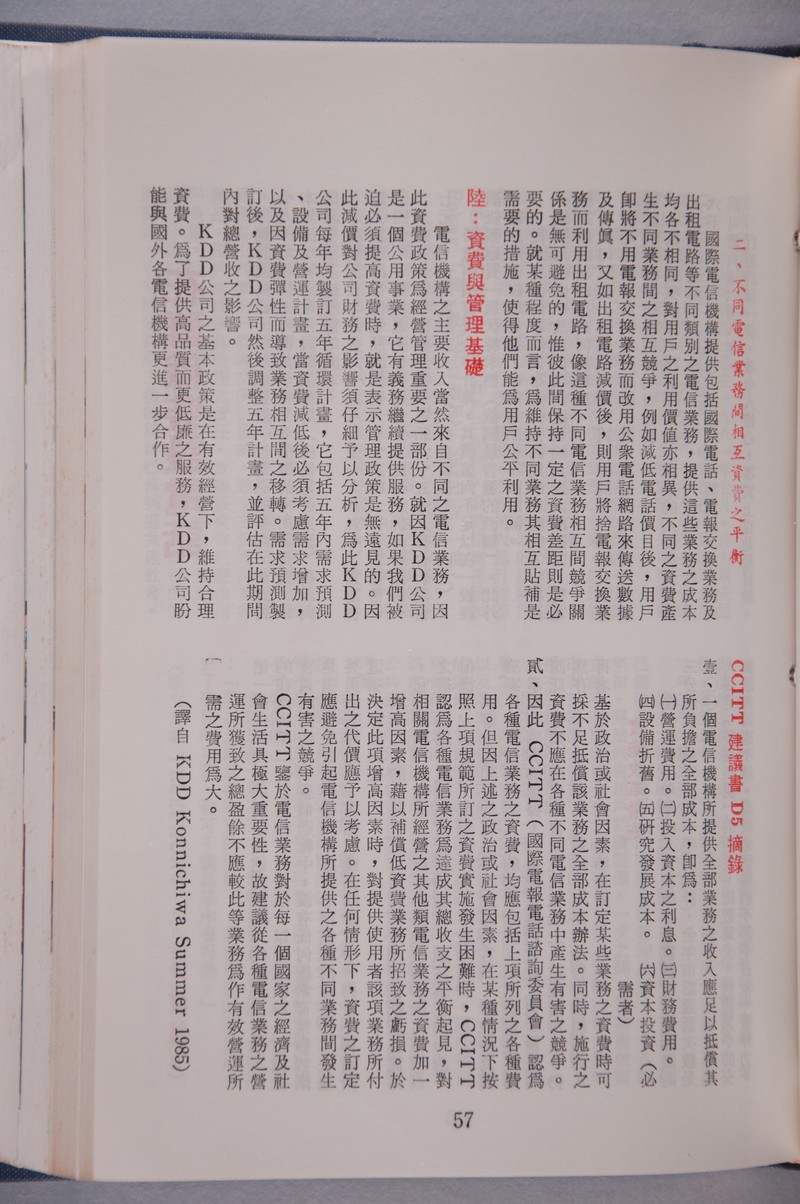 二、不同電信業務間相互資費之平衡
國際電信機構提供包括國際電話、電報交換業務及
出租電路等不同類別之電信業務，提供這些業務之成本
均各不相同，對用戶之利用價值亦相異，不同之資費產
生不同業務間之相互競爭，例如減低電話價目後，用戶
卽將不用電報交換業務而改用公衆電話網路來傳送數據
及傳眞，又如出租電路減價後，則用戶將捨電報交換業
務而利用出租電路，像這種不同電信業務相互間競爭關
係是無可避免的，惟彼此間保持一定之資費差距則是必
要的。就某種程度而言，爲維持不同業務其相互貼補是
需要的措施，使得他們能爲用戶公平利用。
陸：資費與管理基礎
電信機構之主要收入當然來自不同之電信業務，因
此資費政策爲經營管理重要之一部份。就因KDD公司
是一個公用事業，它有義務繼續提供服務，如果我們被
迫必須提高資費時，就是表示管理政策是無遠見的。因
此減價對公司財務之影響須仔細予以分析，爲此KDD
公司每年均製訂五年循環計畫，它包括五年內需求預測
、設備及營運計畫，當資費減低後必須考慮需求增加，
以及因資費彈性而導致業務相互間之移轉。需求預測製
訂後，KDD公司然後調整五年計畫，並評估在此期間
內對總營收之影響。
KDD公司之基本政策是在有效經營下，維持合理
資費。爲了提供高品質而更低廉之服務，KDD公司盼
能與國外各電信機構更進一步合作。
CCITT 建議書 D5 摘錄
壹、一個電信機構所提供全部業務之收入應足以抵償其
所負擔之全部成本，卽爲：
㈠營運費用。㈡投入資本之利息。㈢財務費用。
㈣設備折舊。㈤研究發展成本。㈥資本投資（必
需者）
基於政治或社會因素，在訂定某些業務之資費時可
採不足抵償該業務之全部成本辦法。同時，施行之
資費不應在各種不同電信業務中產生有害之競爭。
貳、因此 CCITT（國際電報電話諮詢委員會）認爲
各種電信業務之資費，均應包括上項所列之各種費
用。但因上述之政治或社會因素，在某種情況下按
照上項規範所訂之資費實施發生困難時，CCITT
認爲各種電信業務爲達成其總收支之平衡起見，對
相關電信機構所經營之其他類電信業務之資費加一
增高因素，藉以補償低資費業務所招致之虧損。於
決定此項增高因素時，對提供使用者該項業務所付
出之代價應予以考慮。在任何情形下，資費之訂定
應避免引起電信機構所提供之各種不同業務間發生
有害之競爭。
CCITT鑒於電信業務對於每一個國家之經濟及社
會生活具極大重要性，故建議從各種電信業務之營
運所獲致之總盈餘不應較此等業務爲作有效營運所
需之費用爲大。
（譯自 KDD Konnichiwa Summer 1985）
57